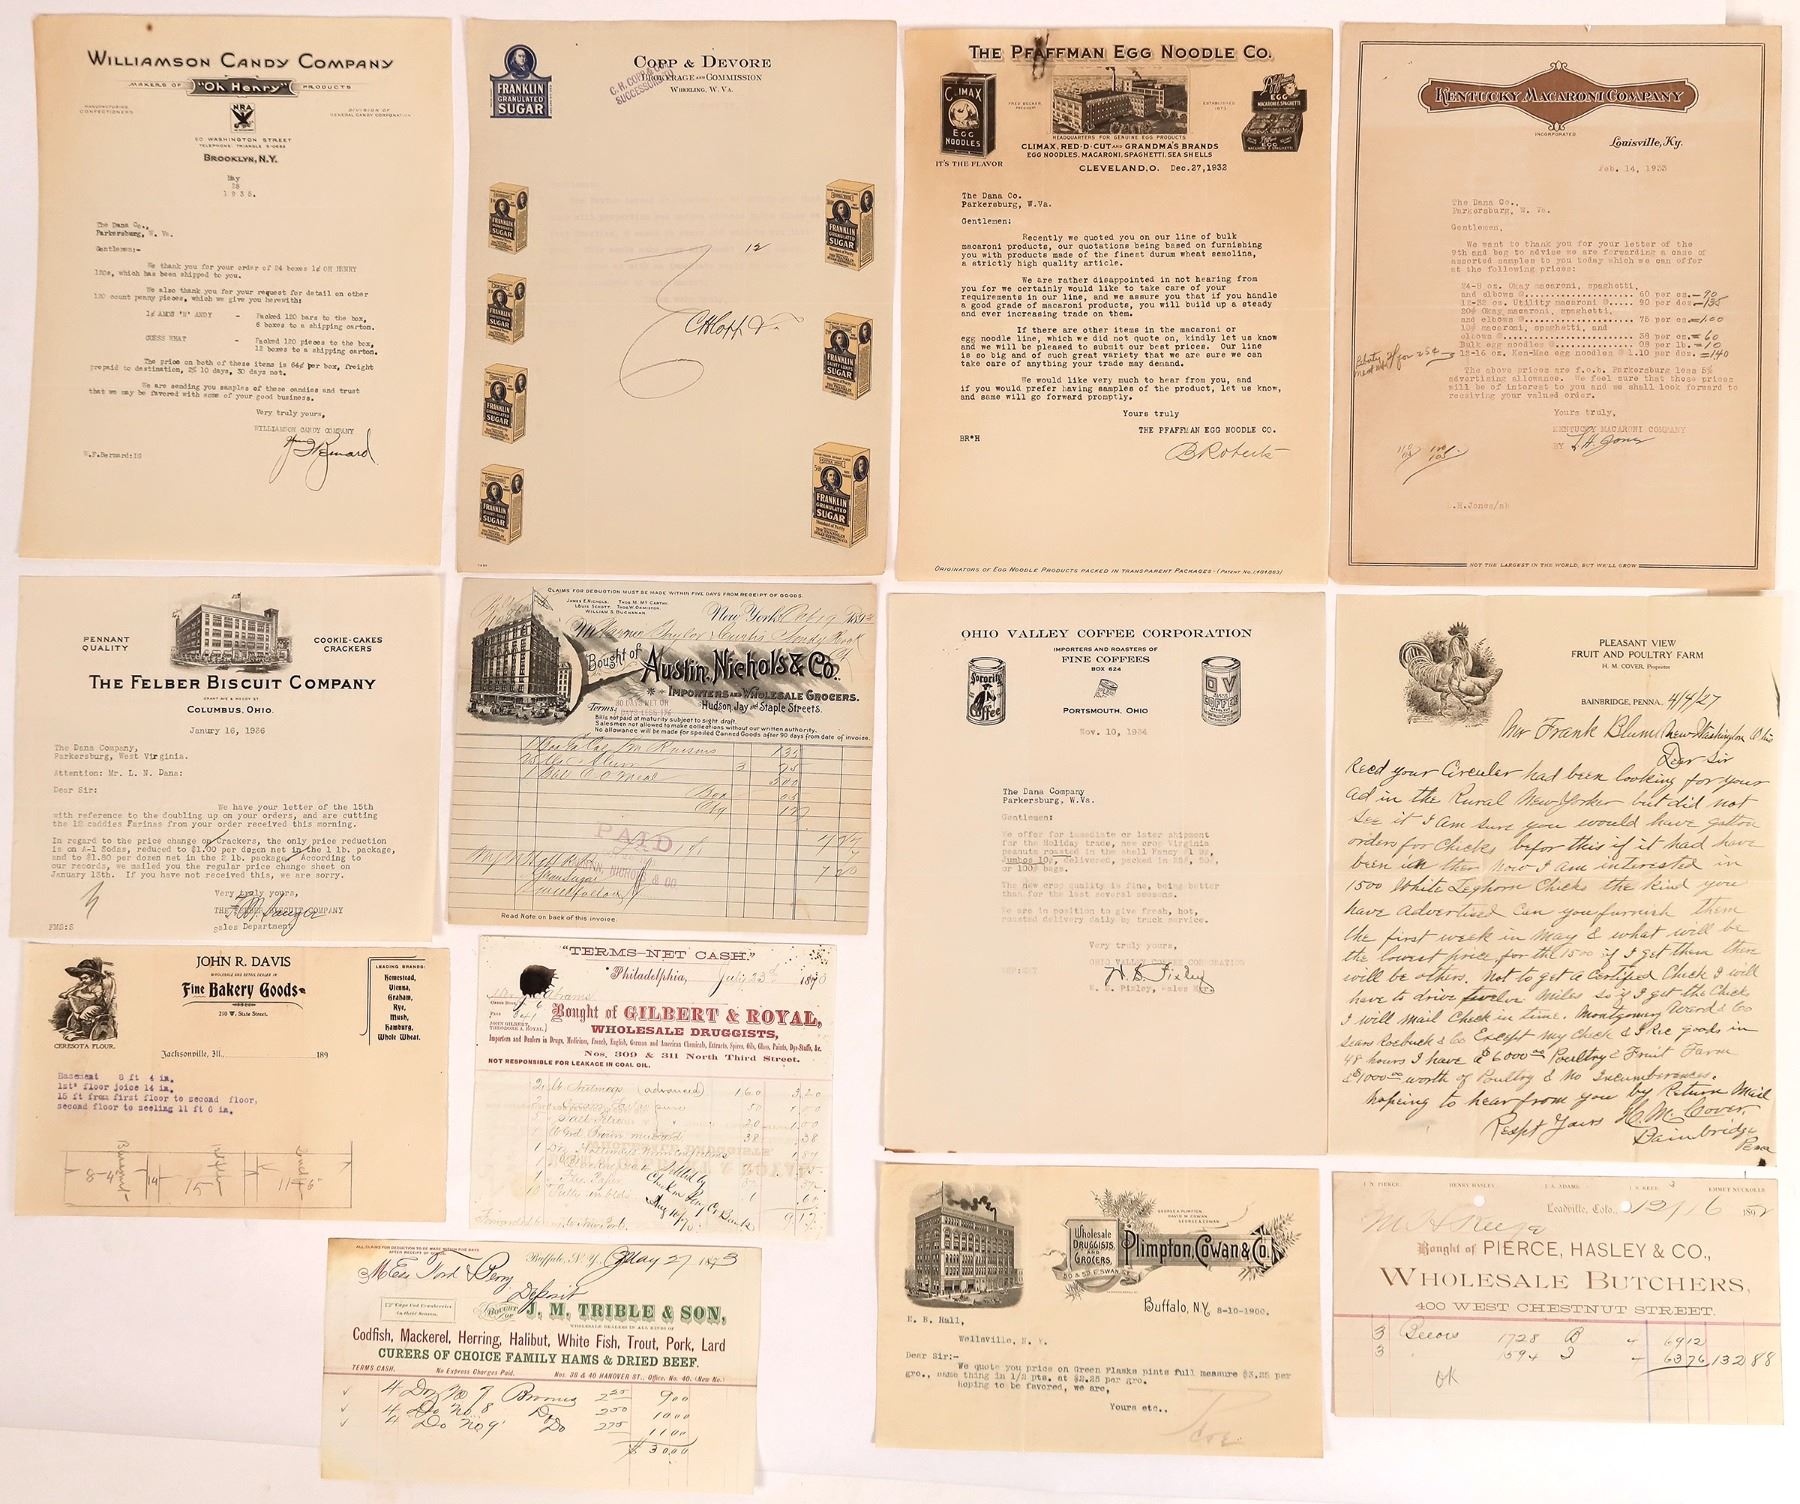 WILLIAMSON CANDY COMPANY
MAKERS OF "Oh Henry" PRODUCTS
MANUFACTURING CONFECTIONERS
DIVISION OF GENERAL CANDY CORPORATION
NRA
60 WASHINGTON STREET
BROOKLYN, N.Y.
May
28
1935.
The Dana Co.,
Parkersburg, W. Va.
Gentlemen:-
We thank you for your order of 24 boxes 1¢ OH HENRY
120s, which has been shipped to you.
We also thank you for your request for detail on other
120 count penny pieces, which we give you herewith:
1¢ AMOS 'N' ANDY - Packed 120 bars to the box,
6 boxes to a shipping carton.
GUESS WHAT - Packed 120 pieces to the box,
12 boxes to a shipping carton.
The price on both of these items is 64¢ per box, freight
prepaid to destination, 2% 10 days, 30 days net.
We are sending you samples of these candies and trust
that we may be favored with some of your good business.
Very truly yours,
WILLIAMSON CANDY COMPANY
W.F.Bernard:IG
FRANKLIN
GRANULATED
SUGAR
COPP & DEVORE
BROKERAGE AND COMMISSION
WHEELING, W. VA.
SUCCESSOR
12
FRANKLIN
SUGAR
THE PFAFFMAN EGG NOODLE CO.
CLIMAX
EGG
NOODLES
IT'S THE FLAVOR
FRED BECKER
PRESIDENT
ESTABLISHED
1873
HEADQUARTERS FOR GENUINE EGG PRODUCTS
CLIMAX, RED-D-CUT AND GRANDMA'S BRANDS
EGG NOODLES, MACARONI, SPAGHETTI, SEA SHELLS
CLEVELAND, O. Dec. 27, 1932
The Dana Co.
Parkersburg, W.Va.
Gentlemen:
Recently we quoted you on our line of bulk
macaroni products, our quotations being based on furnishing
you with products made of the finest durum wheat semolina,
a strictly high quality article.
We are rather disappointed in not hearing from
you for we certainly would like to take care of your
requirements in our line, and we assure you that if you handle
a good grade of macaroni products, you will build up a steady
and ever increasing trade on them.
If there are other items in the macaroni or
egg noodle line, which we did not quote on, kindly let us know
and we will be pleased to submit our best prices. Our line
is so big and of such great variety that we are sure we can
take care of anything your trade may demand.
We would like very much to hear from you, and
if you would prefer having samples of the product, let us know,
and same will go forward promptly.
Yours truly
THE PFAFFMAN EGG NOODLE CO.
BR*H
B Roberts
ORIGINATORS OF EGG NOODLE PRODUCTS PACKED IN TRANSPARENT PACKAGES - (PATENT NO. 1404883)
KENTUCKY MACARONI COMPANY
INCORPORATED
Louisville, Ky.
Feb. 14, 1933
The Dana Co.,
Parkersburg, W. Va.
Gentlemen,
We want to thank you for your letter of the
9th and beg to advise we are forwarding a case of
assorted samples to you today which we can offer
at the following prices:
24-8 oz. Okay macaroni, spaghetti,
and elbows @ 60 per cs. - 90
12-32 oz. Utility macaroni @ 90 per doz. - 135
20# Okay macaroni, spaghetti,
and elbows @ 75 per cs. = 1.00
10# macaroni, spaghetti, and
elbows @ 38 per cs. = 60
Bulk egg noodles @ 08 per lb. = 10
12-16 oz. Ken-Mac egg noodles @ 1.10 per doz. = 140
2 for 25¢
The above prices are f.o.b. Parkersburg less 5%
advertising allowance. We feel sure that these prices
will be of interest to you and we shall look forward to
receiving your valued order.
Yours truly,
KENTUCKY MACARONI COMPANY
BY L.H. Jones
L.H.Jones/ab
NOT THE LARGEST IN THE WORLD, BUT WE'LL GROW
PENNANT
QUALITY
COOKIE-CAKES
CRACKERS
THE FELBER BISCUIT COMPANY
COLUMBUS, OHIO.
Janury 16, 1936
The Dana Company,
Parkersburg, West Virginia.
Attention: Mr. L. N. Dana:
Dear Sir:
We have your letter of the 15th
with reference to the doubling up on your orders, and are cutting
the 12 caddies Farinas from your order received this morning.
In regard to the price change on crackers, the only price reduction
is on A-1 Sodas, reduced to $1.00 per dozen net in the 1 lb. package,
and to $1.80 per dozen net in the 2 lb. package. According to
our records, we mailed you the regular price change sheet on
January 13th. If you have not received this, we are sorry.
Very truly yours,
THE FELBER BISCUIT COMPANY
Sales Department
FMS:S
CLAIMS FOR DEDUCTION MUST BE MADE WITHIN FIVE DAYS FROM RECEIPT OF GOODS.
JAMES E. NICHOLS. THOS. M. MC CARTHY.
LOUIS SCHOTT. THOS. W. ORMISTON.
WILLIAM S. BUCHANAN.
New York, Oct 19
Bought of Austin, Nichols & Co.
IMPORTERS AND WHOLESALE GROCERS.
Hudson, Jay and Staple Streets.
Terms: 30 DAYS NET OR
Bills not paid at maturity subject to sight draft.
Salesmen not allowed to make collections without our written authority.
No allowance will be made for spoiled Canned Goods after 90 days from date of invoice.
Raisins 135
Alum 3 75
Box 05
PAID
Read Note on back of this invoice.
OHIO VALLEY COFFEE CORPORATION
IMPORTERS AND ROASTERS OF
FINE COFFEES
BOX 624
Sorority
Coffee
OV
COFFEE
PORTSMOUTH, OHIO
Nov. 10, 1934
The Dana Company
Parkersburg, W.Va.
Gentlemen:
We offer for immediate or later shipment
for the Holiday trade, new crop Virginia
peanuts roasted in the shell Fancy 9¢,
Jumbos 10¢, delivered, packed in 25#, 50#,
or 100# bags.
The new crop quality is fine, being better
than for the last several seasons.
We are in position to give fresh, hot,
roasted delivery daily by truck service.
Very truly yours,
OHIO VALLEY COFFEE CORPORATION
H. S. Pixley, Sales Mgr.
PLEASANT VIEW
FRUIT AND POULTRY FARM
H. M. COVER, Proprietor
BAINBRIDGE, PENNA., 4/4/27
Mr Frank Blum New Washington Ohio
Dear Sir
Recd your Circular had been looking for your
ad in the Rural New Yorker but did not
see it I am sure you would have gotten
orders for Chicks befor this if it had have
been in ther Now I am interested in
1500 White Leghorn Chicks the kind you
have advertised Can you furnish them
the first week in May & what will be
the lowest price for the 1500 if I get them there
will be others. Not to get a Certified Check I will
have to drive twelve miles so if I get the Chicks
I will mail Check in time. Montgomery Ward & Co
Sears Roebuck & Co Except my Check & I Rec goods in
48 hours I have a $6000.00 Poultry & Fruit Farm
& $1000.00 worth of Poultry & No Incumberances.
hoping to hear from you by Return Mail
Respt Yours H. M. Cover,
Bainbridge
Penna
JOHN R. DAVIS
WHOLESALE AND RETAIL DEALER IN
Fine Bakery Goods
210 W. State Street.
LEADING BRANDS:
Homestead,
Vienna,
Graham,
Rye,
Mush,
Hamburg,
Whole Wheat.
CERESOTA FLOUR.
Jacksonville, Ill., 189
Basement 8 ft 4 in.
1st floor joice 14 in.
15 ft from first floor to second floor,
second floor to seeling 11 ft 6 in.
8-4
14
15
11-6
"TERMS-NET CASH."
Philadelphia, July 23d 1870
Bought of GILBERT & ROYAL,
WHOLESALE DRUGGISTS,
Importers and Dealers in Drugs, Medicines, French, English, German and American Chemicals, Extracts, Spices, Oils, Glass, Paints, Dye-Stuffs, &c.
Nos. 309 & 311 North Third Street.
NOT RESPONSIBLE FOR LEAKAGE IN COAL OIL.
2 lb Nutmegs (advanced) 160 3.20
38 38
Settled by
Aug 10/70
ALL CLAIMS FOR DEDUCTION TO BE MADE WITHIN FIVE DAYS
AFTER RECEIPT OF GOODS.
Buffalo, N. Y. May 27 1873
Mess Ford & Perry
Deposit
Cape Cod Cranberries
in their Season.
BOUGHT OF J. M. TRIBLE & SON,
WHOLESALE DEALERS IN ALL KINDS OF
Codfish, Mackerel, Herring, Halibut, White Fish, Trout, Pork, Lard
CURERS OF CHOICE FAMILY HAMS & DRIED BEEF.
TERMS CASH. No Express Charges Paid. Nos. 38 & 40 HANOVER ST., Office, No. 40. (New No.)
4 Doz No 7 Brooms 2.25 9.00
4 Do No. 8 Do 2.50 10.00
4 Do No. 9 Do 2.75 11.00
$ 30.00
GEORGE A. PLIMPTON,
DAVID M. COWAN,
GEORGE A. COWAN.
Wholesale
DRUGGISTS
AND
GROCERS.
Plimpton, Cowan & Co.
50 & 52 E. SWAN ST.
Buffalo, N.Y. 8-10-1900.
E. B. Hall,
Wellsville, N. Y.
Dear Sir:-
We quote you price on Green Flasks pints full measure $3.25 per
gro., same thing in 1/2 pts. at $2.25 per gro.
hoping to be favored, we are,
Yours etc.,
J. N. PIERCE. HENRY HASLEY. J. A. ADAMS. EMMET NUCKOLLS
Leadville, Colo., 12/16
Bought of PIERCE, HASLEY & CO.,
WHOLESALE BUTCHERS,
400 WEST CHESTNUT STREET.
3 Beeves 1728 4 69 12
3 1594 4 63 76 132 88
OK